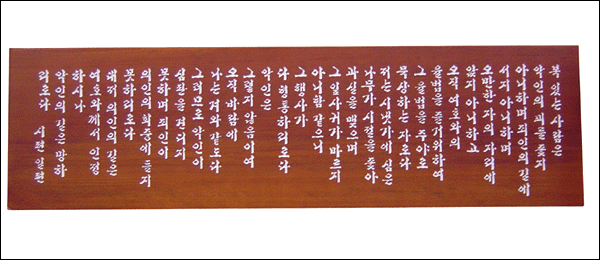 복 있는 사람은
악인의 꾀를 좇지
아니하며 죄인의 길에
서지 아니하며
오만한 자의 자리에
앉지 아니하고
오직 여호와의
율법을 즐거워하여
그 율법을 주야로
묵상하는 자로다
저는 시냇가에 심은
나무가 시절을 좇아
과실을 맺으며
그 잎사귀가 마르지
아니함 같으니
그 행사가
다 형통하리로다
악인은
그렇지 않음이여
오직 바람에
나는 겨와 같도다
그러므로 악인이
심판을 견디지
못하며 죄인이
의인의 회중에 들지
못하리로다
대저 의인의 길은
여호와께서 인정
하시나
악인의 길은 망하
리로다 시편 일편